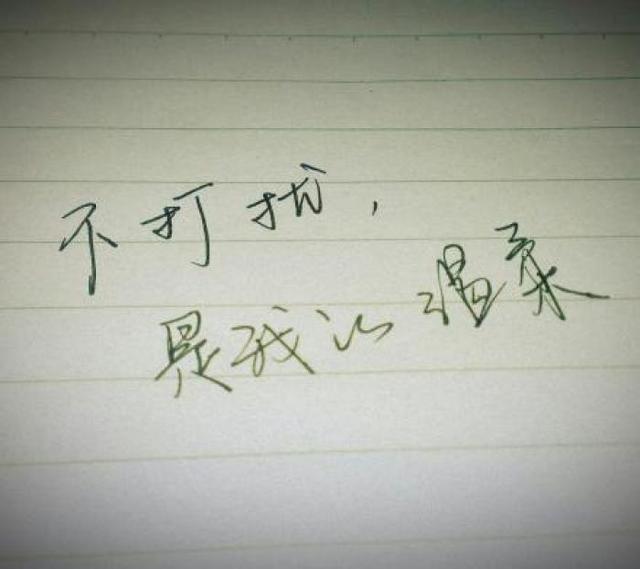 不打扰，
是我的温柔